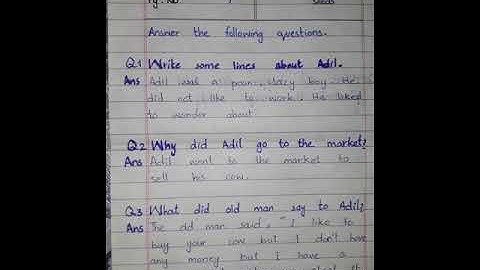 Answer the following questions.
Q1 Write some lines about Adil.
Ans Adil was a poor, lazy boy. He
did not like to work. He liked
to wonder about
Q2 Why did Adil go to the market?
Ans Adil went to the market to
sell his cow.
Q3 What did old man say to Adil?
Ans The old man said, "I like to
buy your cow but I don't have
any money but I have a